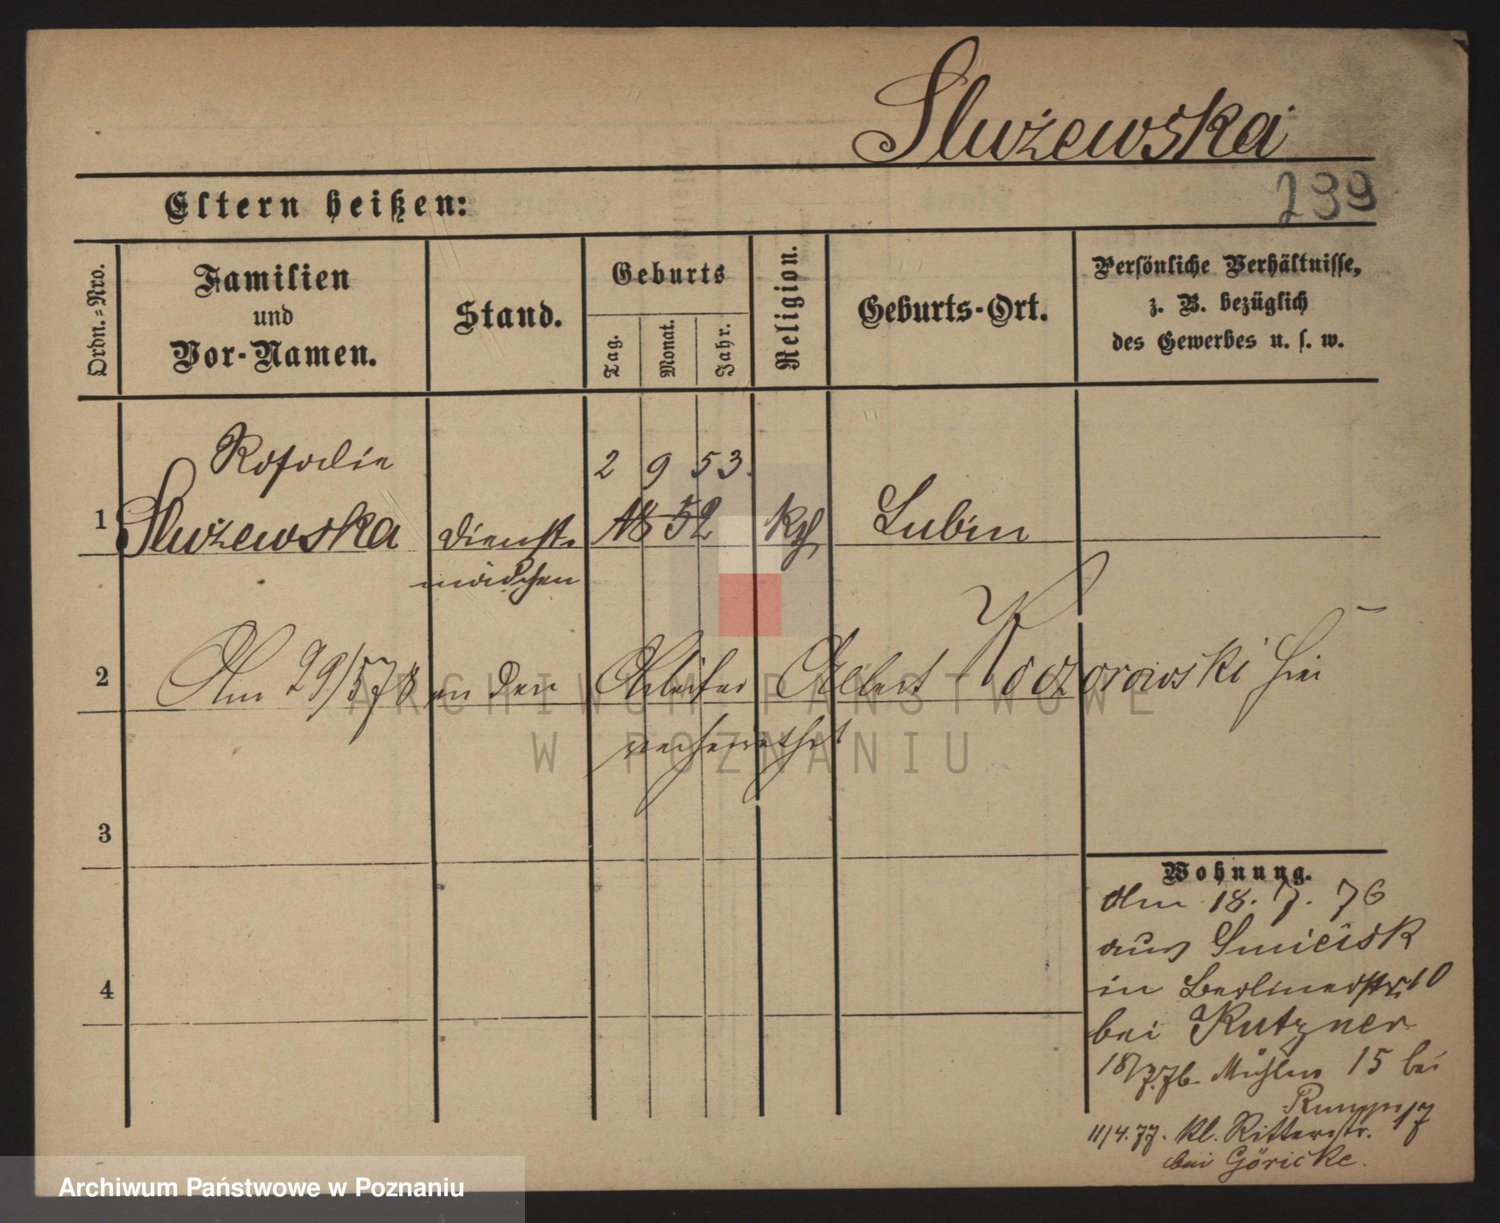 Służewska
239
Eltern heißen:
Ordn.-Nro.
Familien
und
Vor-Namen.
Stand.
Geburts
Tag.
Monat.
Jahr.
Religion.
Geburts-Ort.
Persönliche Verhältnisse,
z. B. bezüglich
des Gewerbes u. s. w.
Rosalie
2 9 53.
1 Służewska Dienst- 52 kth Lubin
mädchen
2 Am 29/5 78 an den Arbeiter Albert Koczorowski hier
verheirathet
3
4
Wohnung.
Am 18. 7. 76
aus
in Berlinerstr. 10
bei Kutzner
18/7.76. Mühlen 15 bei
11/4.77. Kl. Ritterstr. 17
bei Göricke.
ARCHIWUM PAŃSTWOWE
W POZNANIU
Archiwum Państwowe w Poznaniu